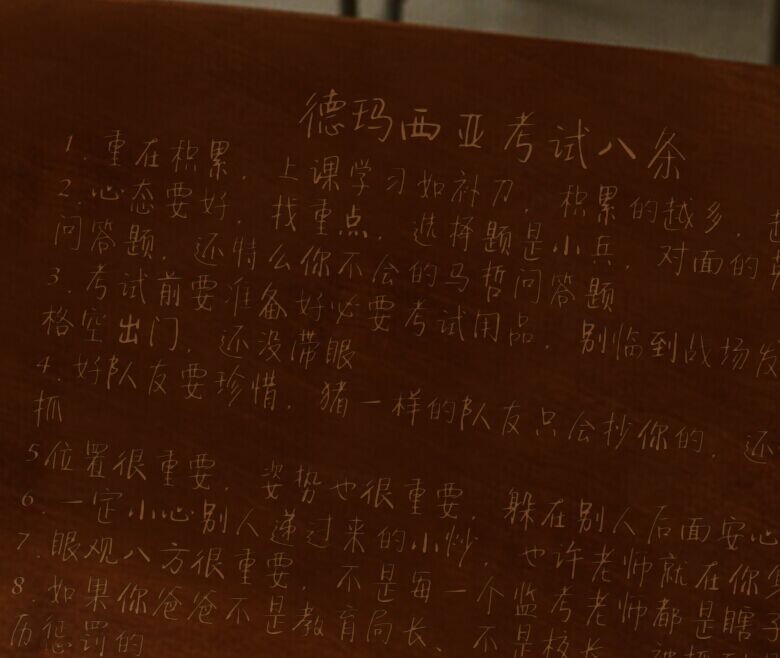 德玛西亚考试八条
1.重在积累，上课学习如补刀，积累的越多，
2.心态要好，找重点，选择题是小兵，对面的
问答题，还特么你不会的马哲问答题
3.考试前要准备好必要考试用品，别临到战场发
格空出门，还没带眼
4.好队友要珍惜，猪一样的队友只会抄你的，还
抓
5位置很重要，姿势也很重要，躲在别人后面安心
6.一定小心别人递过来的小炒，也许老师就在你
7.眼观八方很重要，不是每一个监考老师都是瞎子
8.如果你爸爸不是教育局长、不是校长
历惩罚的